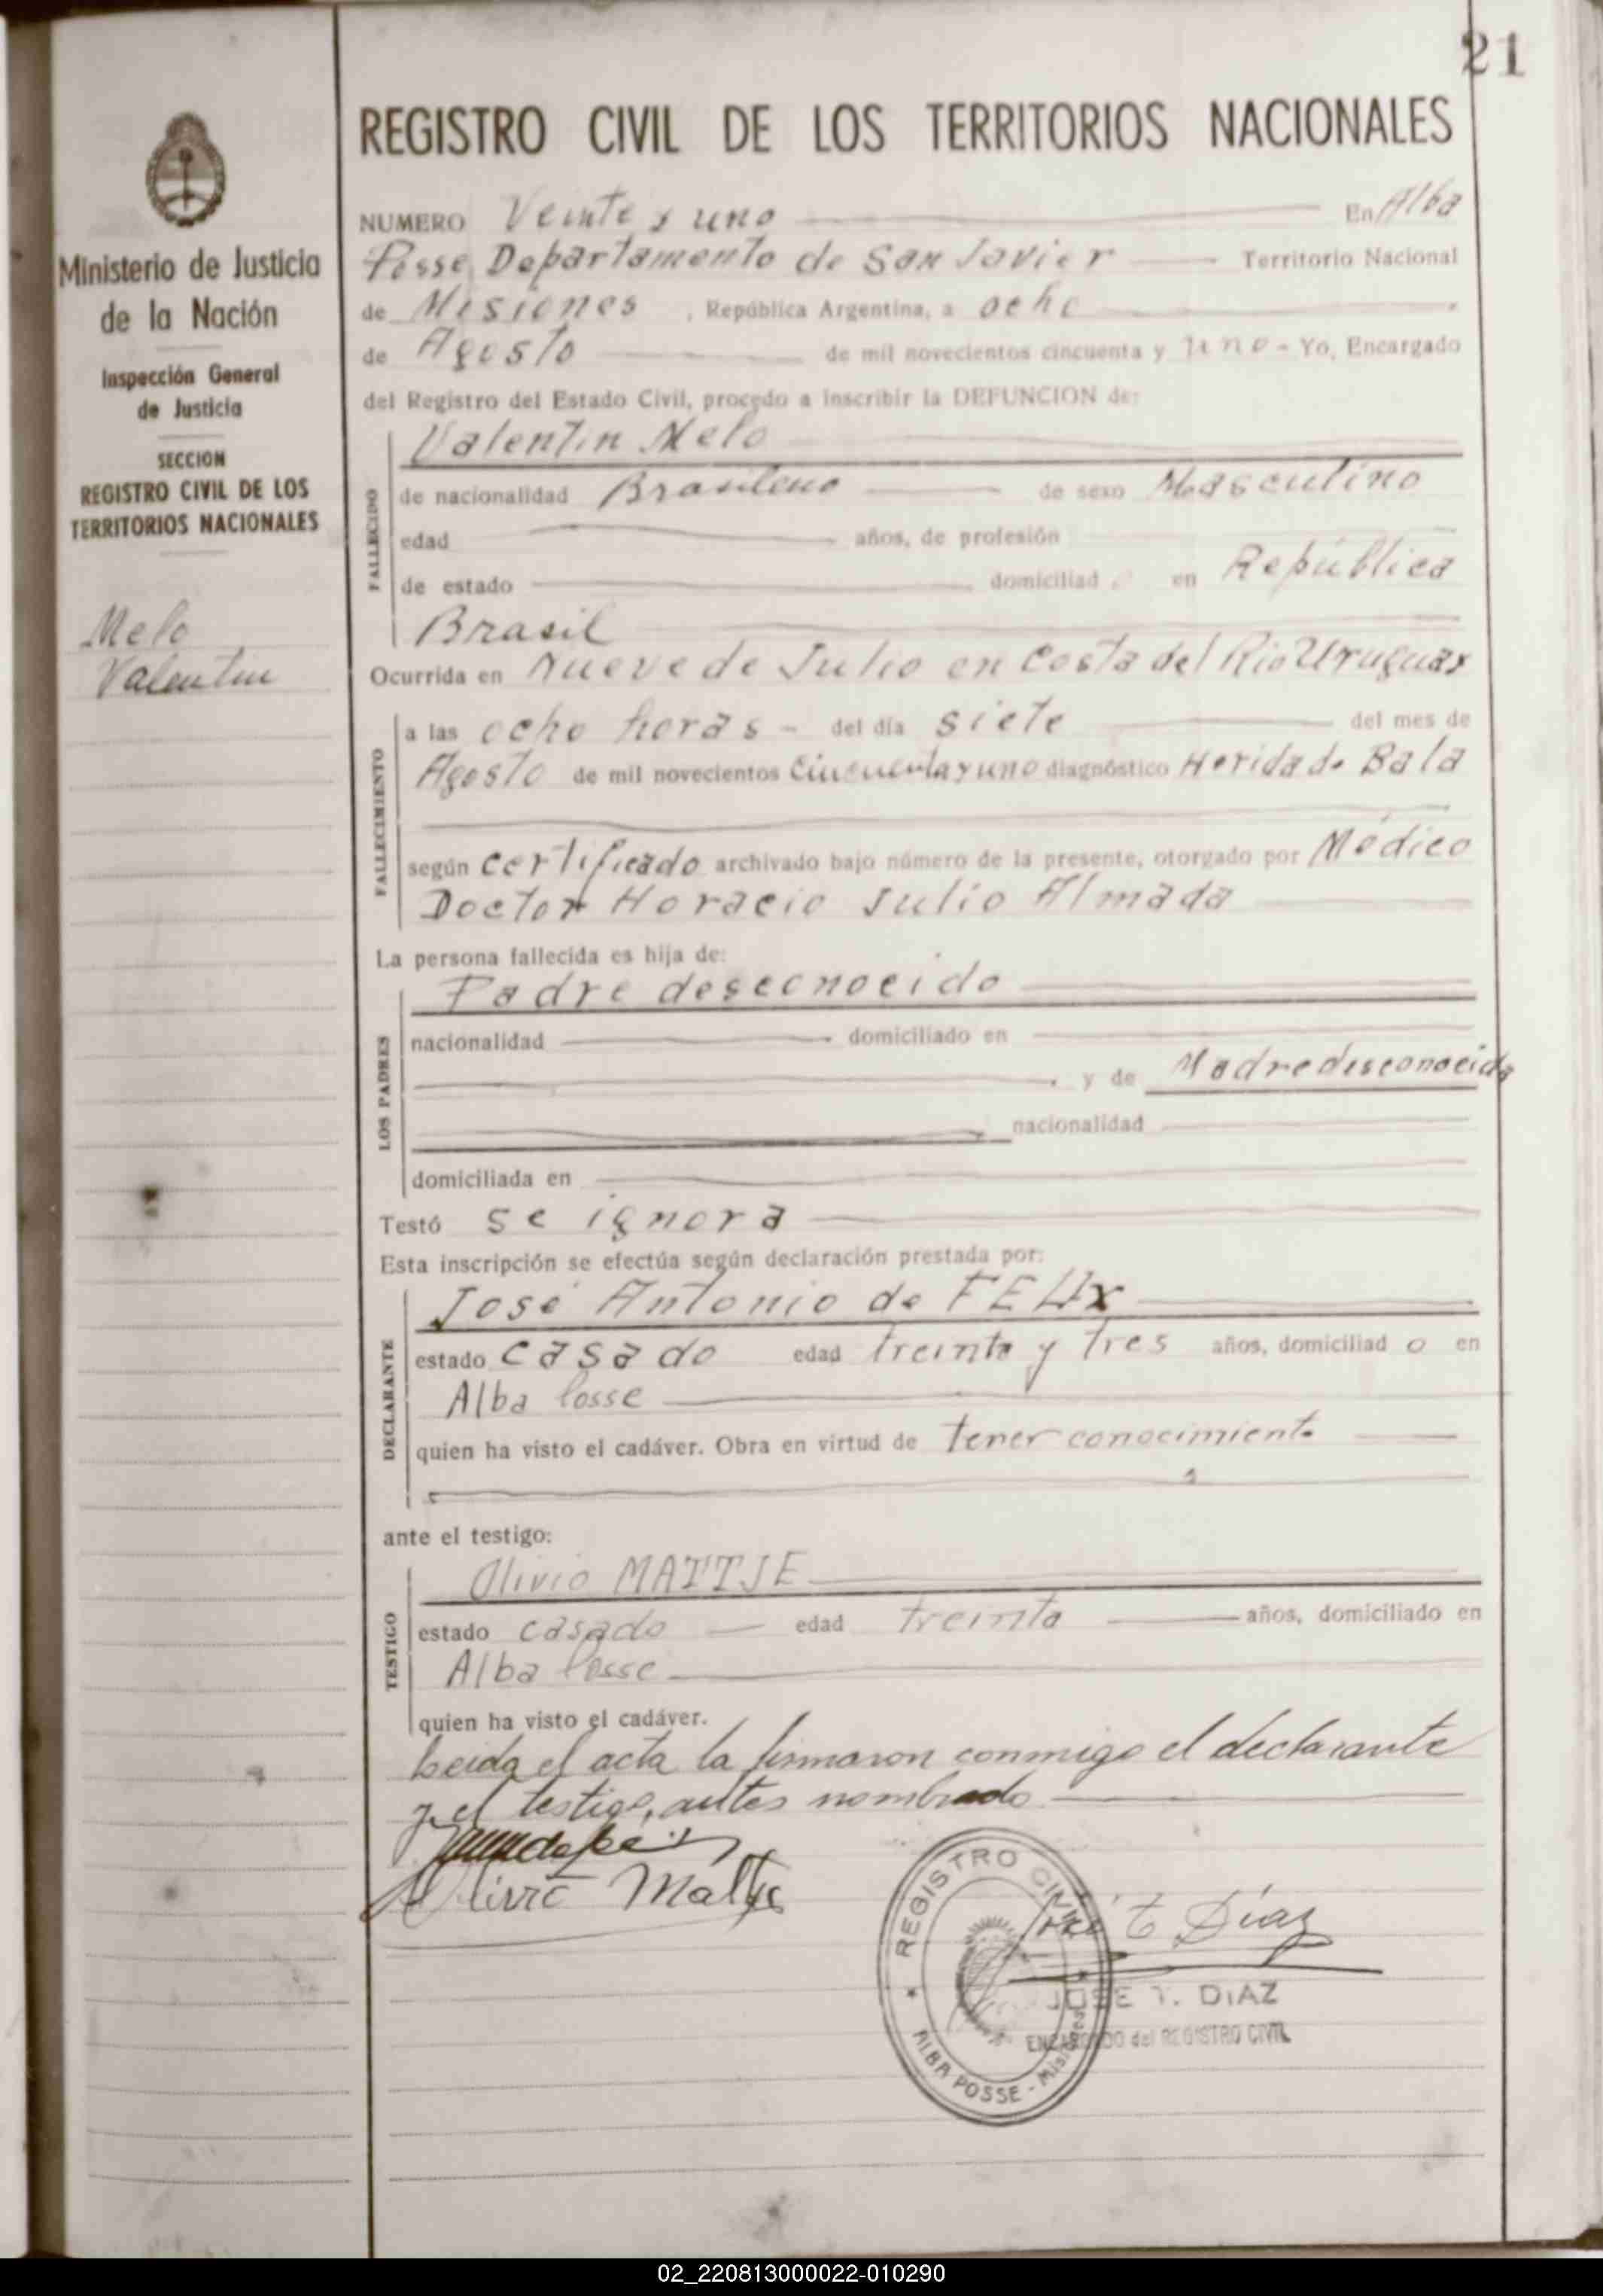 21
REGISTRO CIVIL DE LOS TERRITORIOS NACIONALES
Ministerio de Justicia
de la Nación
Inspección General
de Justicia
SECCION
REGISTRO CIVIL DE LOS
TERRITORIOS NACIONALES
Melo
Valentin
NUMERO Veinte y uno En Alba
Posse Departamento de San Javier Territorio Nacional
de Misiones, República Argentina, a ocho
de Agosto de mil novecientos cincuenta y uno - Yo, Encargado
del Registro del Estado Civil, procedo a inscribir la DEFUNCION de:
FALLECIDO
Valentin Melo
de nacionalidad Brasileno de sexo Masculino
edad años, de profesión
de estado domiciliad en República
Brasil
Ocurrida en Nueve de Julio en Costa del Rio Uruguay
FALLECIMIENTO
a las ocho horas - del día siete del mes de
Agosto de mil novecientos Cincuenta y uno diagnóstico Herida de Bala
según certificado archivado bajo número de la presente, otorgado por Médico
Doctor Horacio Julio Almada
La persona fallecida es hija de:
LOS PADRES
Padre desconocido
nacionalidad domiciliado en
y de Madre desconocida
nacionalidad
domiciliada en
Testó se ignora
Esta inscripción se efectúa según declaración prestada por:
DECLARANTE
José Antonio de FELIX
estado casado edad treinta y tres años, domiciliad o en
Alba Posse
quien ha visto el cadáver. Obra en virtud de tener conocimiento
ante el testigo:
TESTIGO
Olivio MATTJE
estado casado edad treinta años, domiciliado en
Alba Posse
quien ha visto el cadáver.
Leida el acta la firmaron conmigo el declarante
y el testigo, antes nombrado
Olivio Mattje
REGISTRO CIVIL
ALBA POSSE - Misiones
José T Díaz
JOSE T. DIAZ
ENCARGADO del REGISTRO CIVIL
02_220813000022-010290